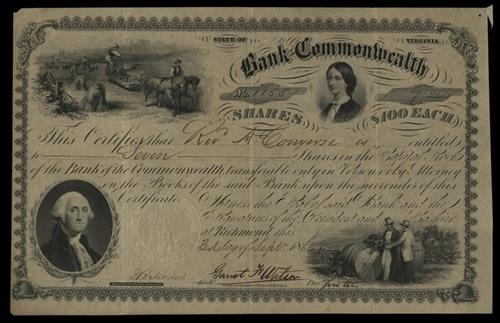 STATE OF VIRGINIA
Bank of Commonwealth
No. 1855 7 Shares
SHARES $100 EACH
This Certifies that Rev A Converse is entitled
to Seven Shares in the Capital Stock
of the Bank of the Commonwealth transferable only in Person or by Attorney
on the Books of the said Bank upon the surrender of this
Certificate. Witness the Seal of said Bank and the
Signatures of the President and Cashier
at Richmond this
3d day of Sept 186
Garrot F Watson
Pres